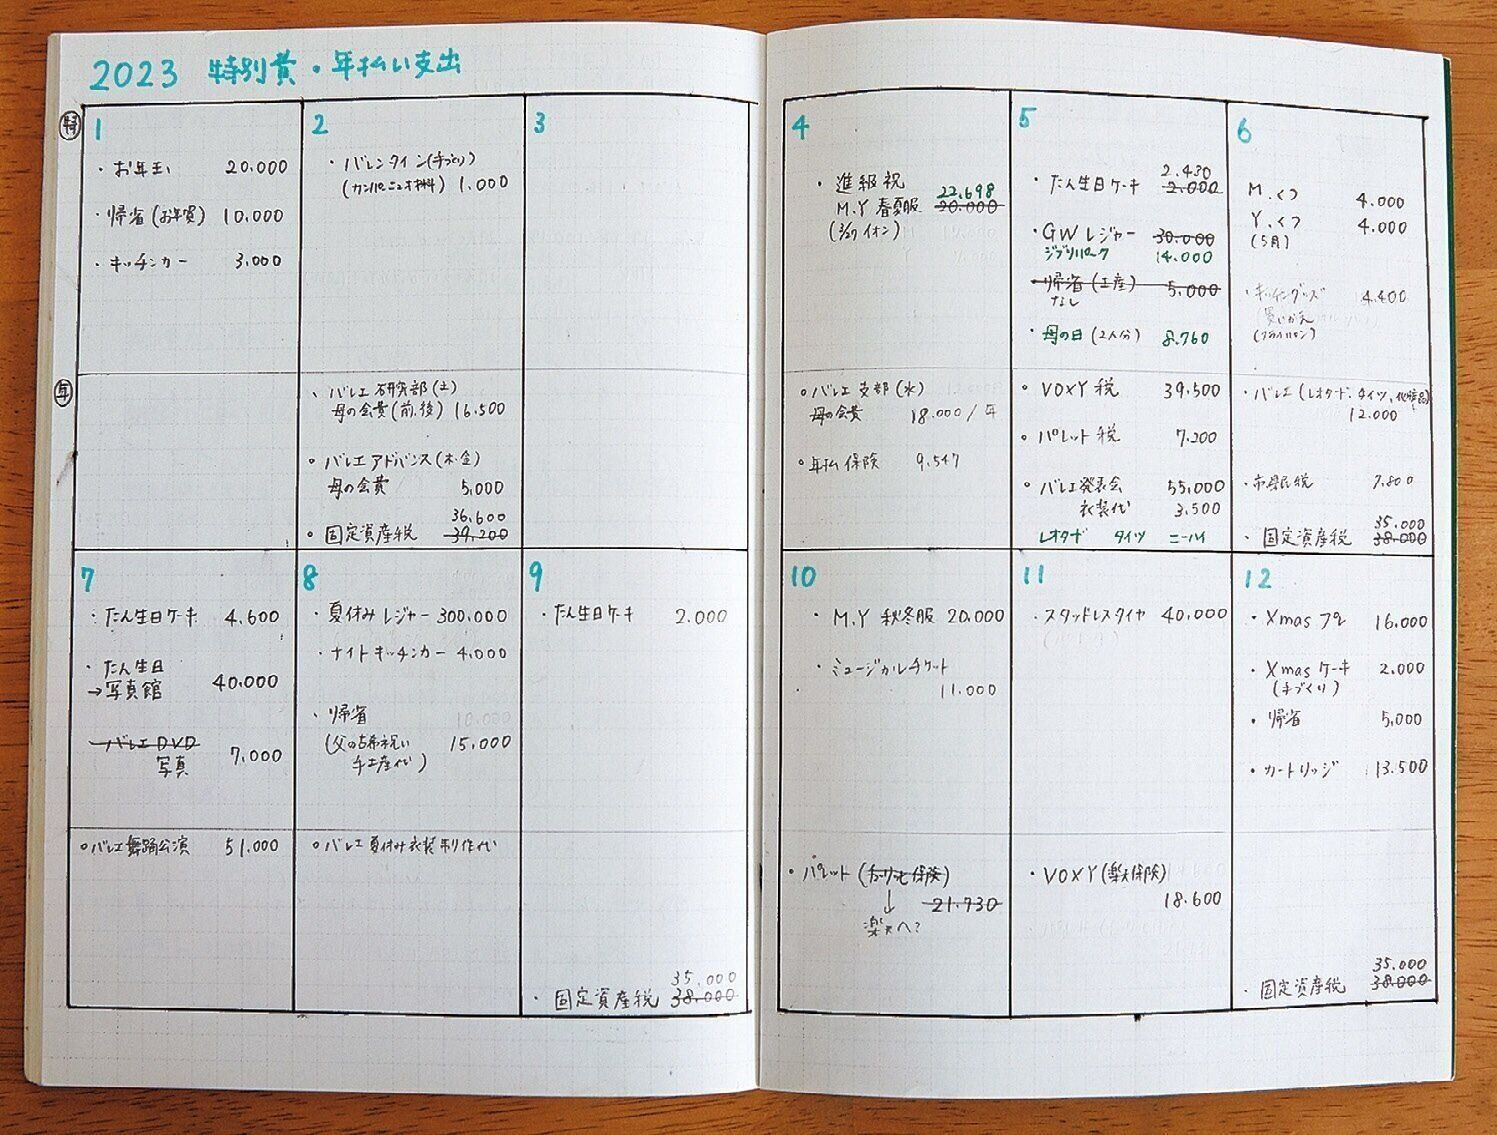 2023 特別費・年払い支出
特
1
・お年玉 20.000
・帰省(お年賀) 10.000
・キッチンカー 3.000
2
・バレンタイン(手づくり)
1.000
3
年
・バレエ研究部(土)
母の会費(前.後) 16.500
・バレエアドバンス(木.金)
母の会費 5,000
36,600
・固定資産税 39,200
4
・進級祝
22,698
M.Y 春夏服 20.000
(3/27 イオン)
5
2.430
・たん生日ケーキ 2.000
・GWレジャー 30.000
ジブリパーク 14.000
・帰省(土産) 5.000
なし
・母の日(2人分) 8.760
6
M.くつ 4.000
Y.くつ 4.000
(5月)
・キッチングッズ 4.400
(買いかえ
(フライパン)
・バレエ支部(水)
母の会費 18.000/年
・年払保険 9.547
・VOXY税 39,500
・パレット税 7.200
・バレエ発表会 55,000
衣装代 3.500
レオタード タイツ ニーハイ
・バレエ(レオタード.タイツ.化粧品)
12.000
・市県民税 7.800
35.000
・固定資産税 38.000
7
・たん生日ケーキ 4.600
・たん生日
→写真館 40.000
バレエDVD
写真 7,000
8
・夏休みレジャー 300.000
・ナイトキッチンカー 4.000
・帰省 10.000
(父の古希祝い 15,000
手土産代)
9
・たん生日ケーキ 2.000
・バレエ舞踊公演 51.000
・バレエ夏休み衣装制作代
35,000
・固定資産税 38.000
10
・M.Y 秋冬服 20,000
・ミュージカルチケット
11.000
11
・スタッドレスタイヤ 40,000
12
・Xmasプレ 16.000
・Xmasケーキ 2,000
(手づくり)
・帰省 5,000
・カートリッジ 13.500
・パレット(チューリッヒ保険)
↓ 21.730
楽天へ?
・VOXY(楽天保険)
18.600
35.000
・固定資産税 38.000